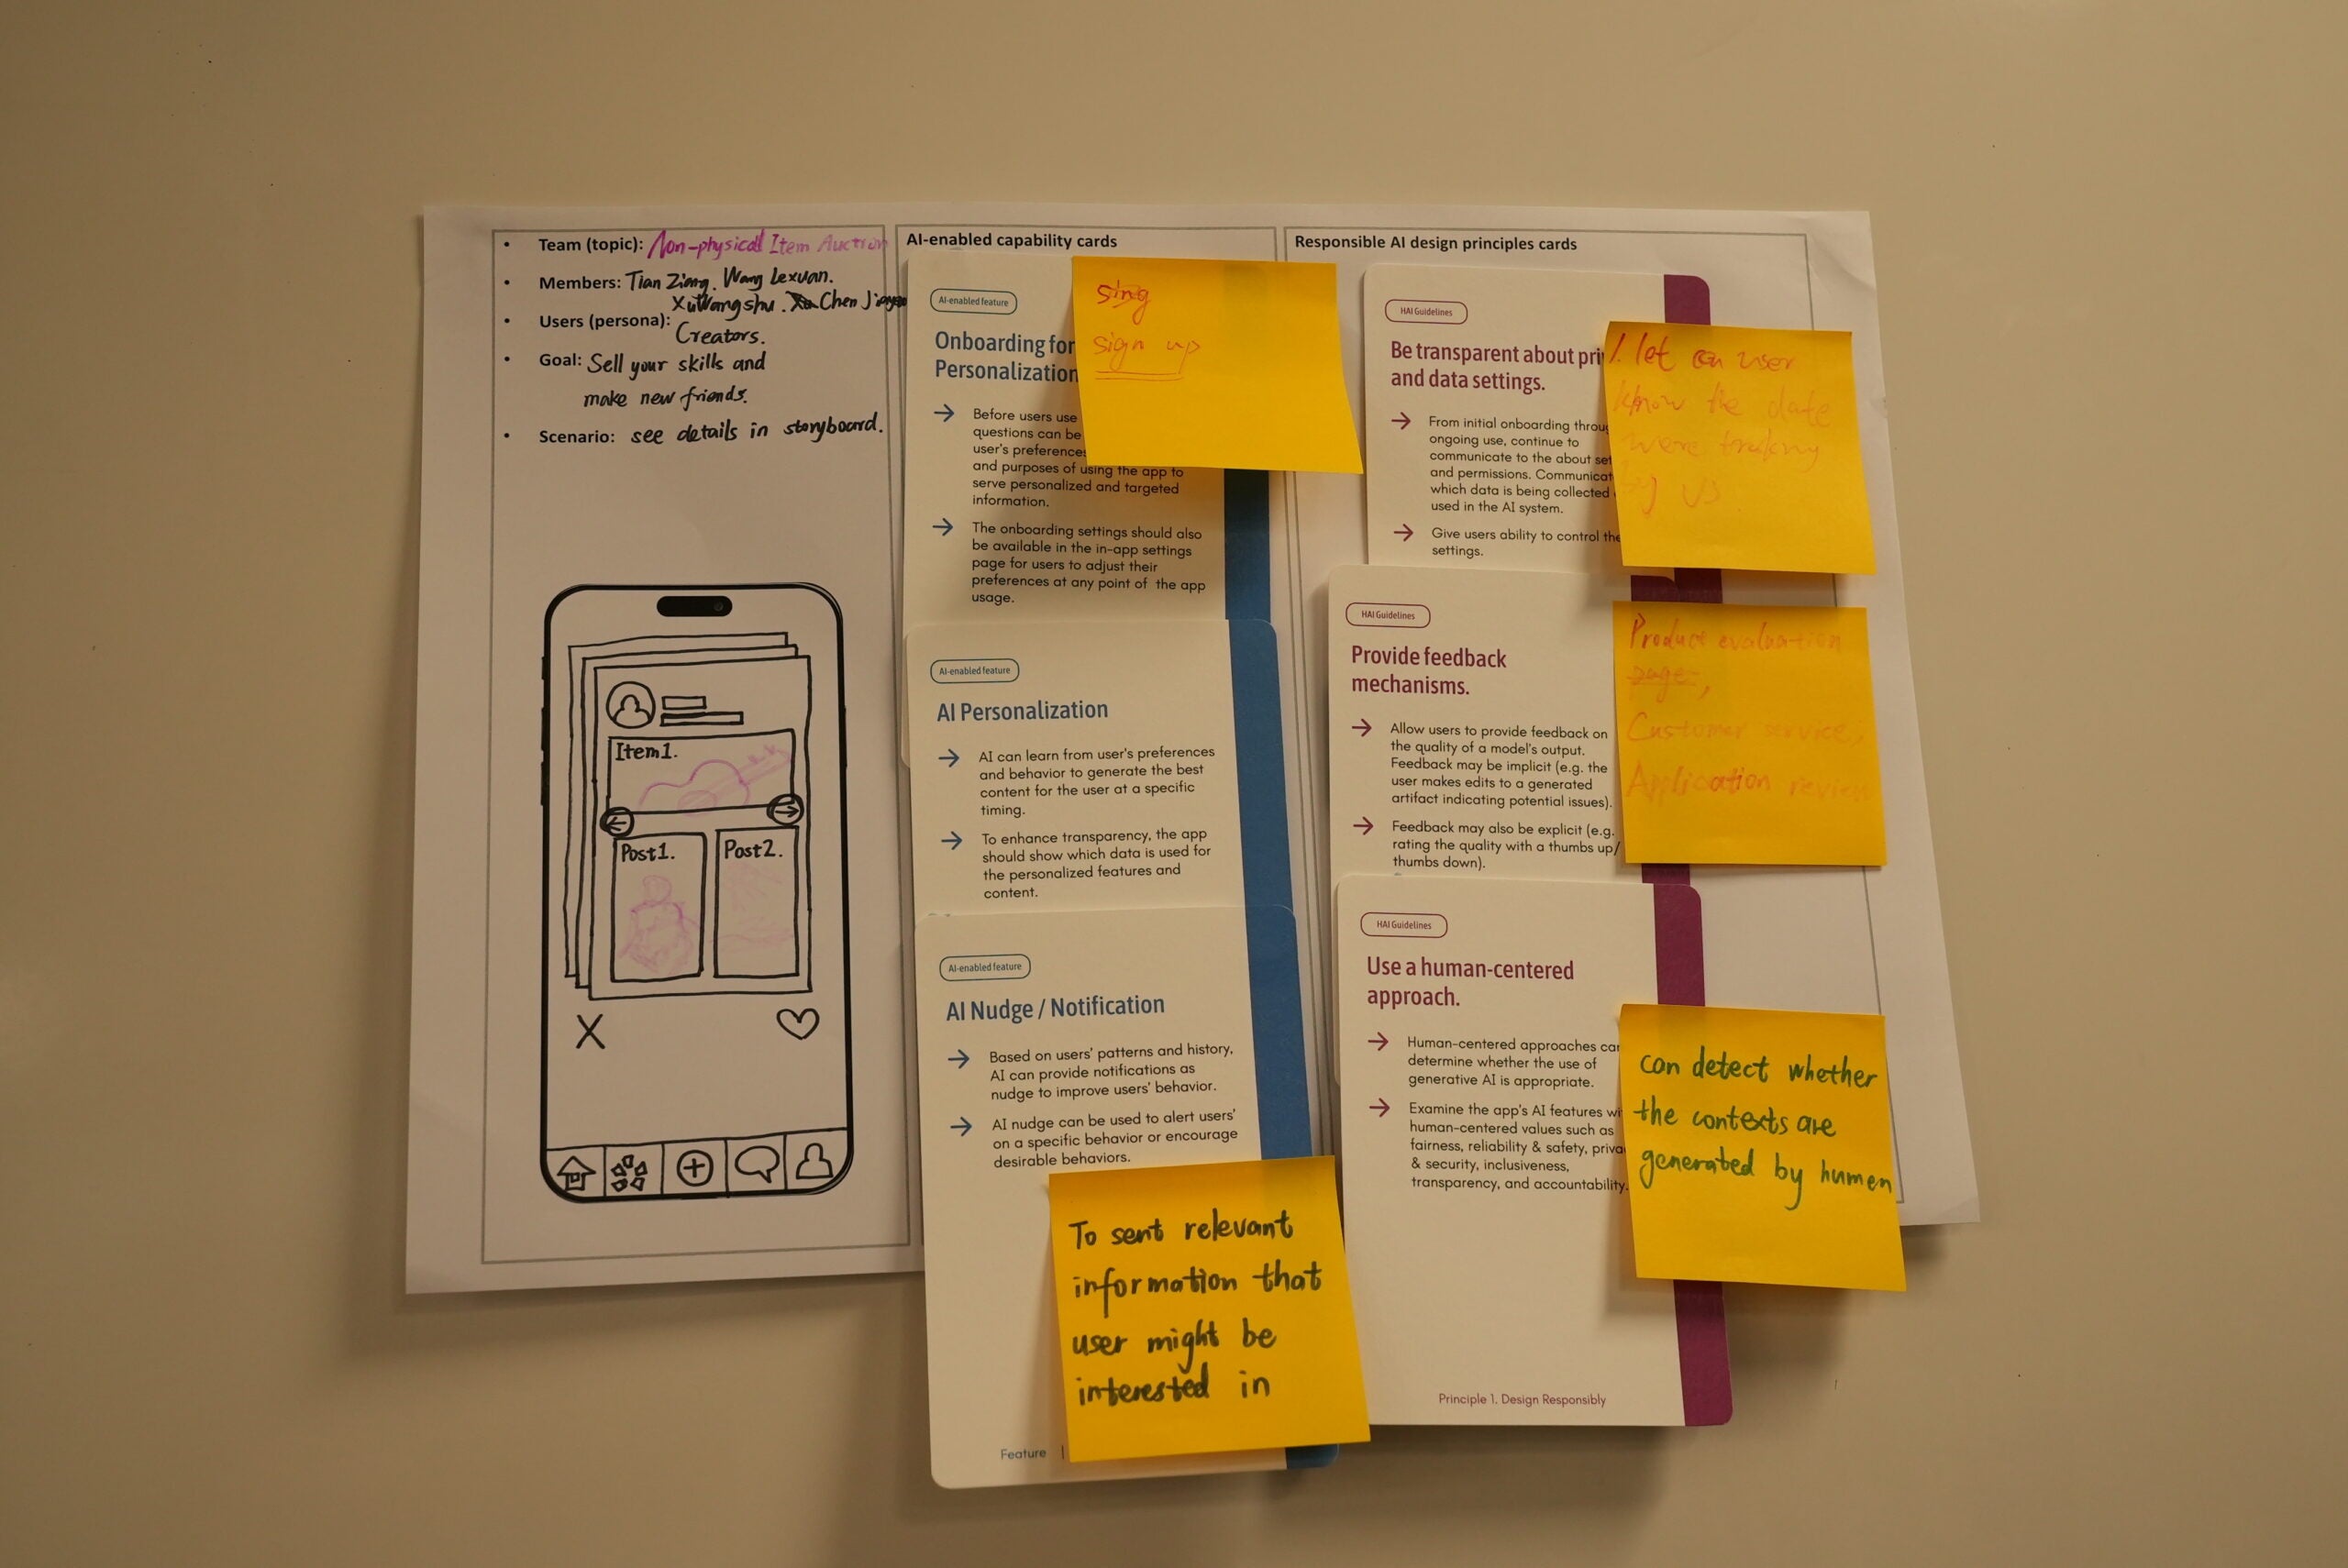 Team (topic): Non-physical Item Auction
Members: Tian Wang Lexuan.
XuWangshu. Chen
Users (persona):
Creators.
Goal: Sell your skills and
make new friends.
Scenario: see details in storyboard.
Item1.
Post1.
Post2.
AI-enabled capability cards
AI-enabled feature
Onboarding for
Personalization
Before users use
questions can be
user's preferences
and purposes of using the app to
serve personalized and targeted
information.
The onboarding settings should also
be available in the in-app settings
page for users to adjust their
preferences at any point of the app
usage.
sing
sign up
AI-enabled feature
AI Personalization
AI can learn from user's preferences
and behavior to generate the best
content for the user at a specific
timing.
To enhance transparency, the app
should show which data is used for
the personalized features and
content.
AI-enabled feature
AI Nudge / Notification
Based on users' patterns and history,
AI can provide notifications as
nudge to improve users' behavior.
AI nudge can be used to alert users'
on a specific behavior or encourage
desirable behaviors.
To sent relevant
information that
user might be
interested in
Feature |
Responsible AI design principles cards
HAI Guidelines
Be transparent about pri
and data settings.
From initial onboarding throu
ongoing use, continue to
communicate to the about set
and permissions. Communicat
which data is being collected
used in the AI system.
Give users ability to control the
settings.
1. let user
know the date
were traking
by us
HAI Guidelines
Provide feedback
mechanisms.
Allow users to provide feedback on
the quality of a model's output.
Feedback may be implicit (e.g. the
user makes edits to a generated
artifact indicating potential issues).
Feedback may also be explicit (e.g.
rating the quality with a thumbs up/
thumbs down).
Product evaluation
page,
Customer service,
Application review
HAI Guidelines
Use a human-centered
approach.
Human-centered approaches can
determine whether the use of
generative AI is appropriate.
Examine the app's AI features wi
human-centered values such as
fairness, reliability & safety, priva
& security, inclusiveness,
transparency, and accountability.
can detect whether
the contexts are
generated by humen
Principle 1. Design Responsibly